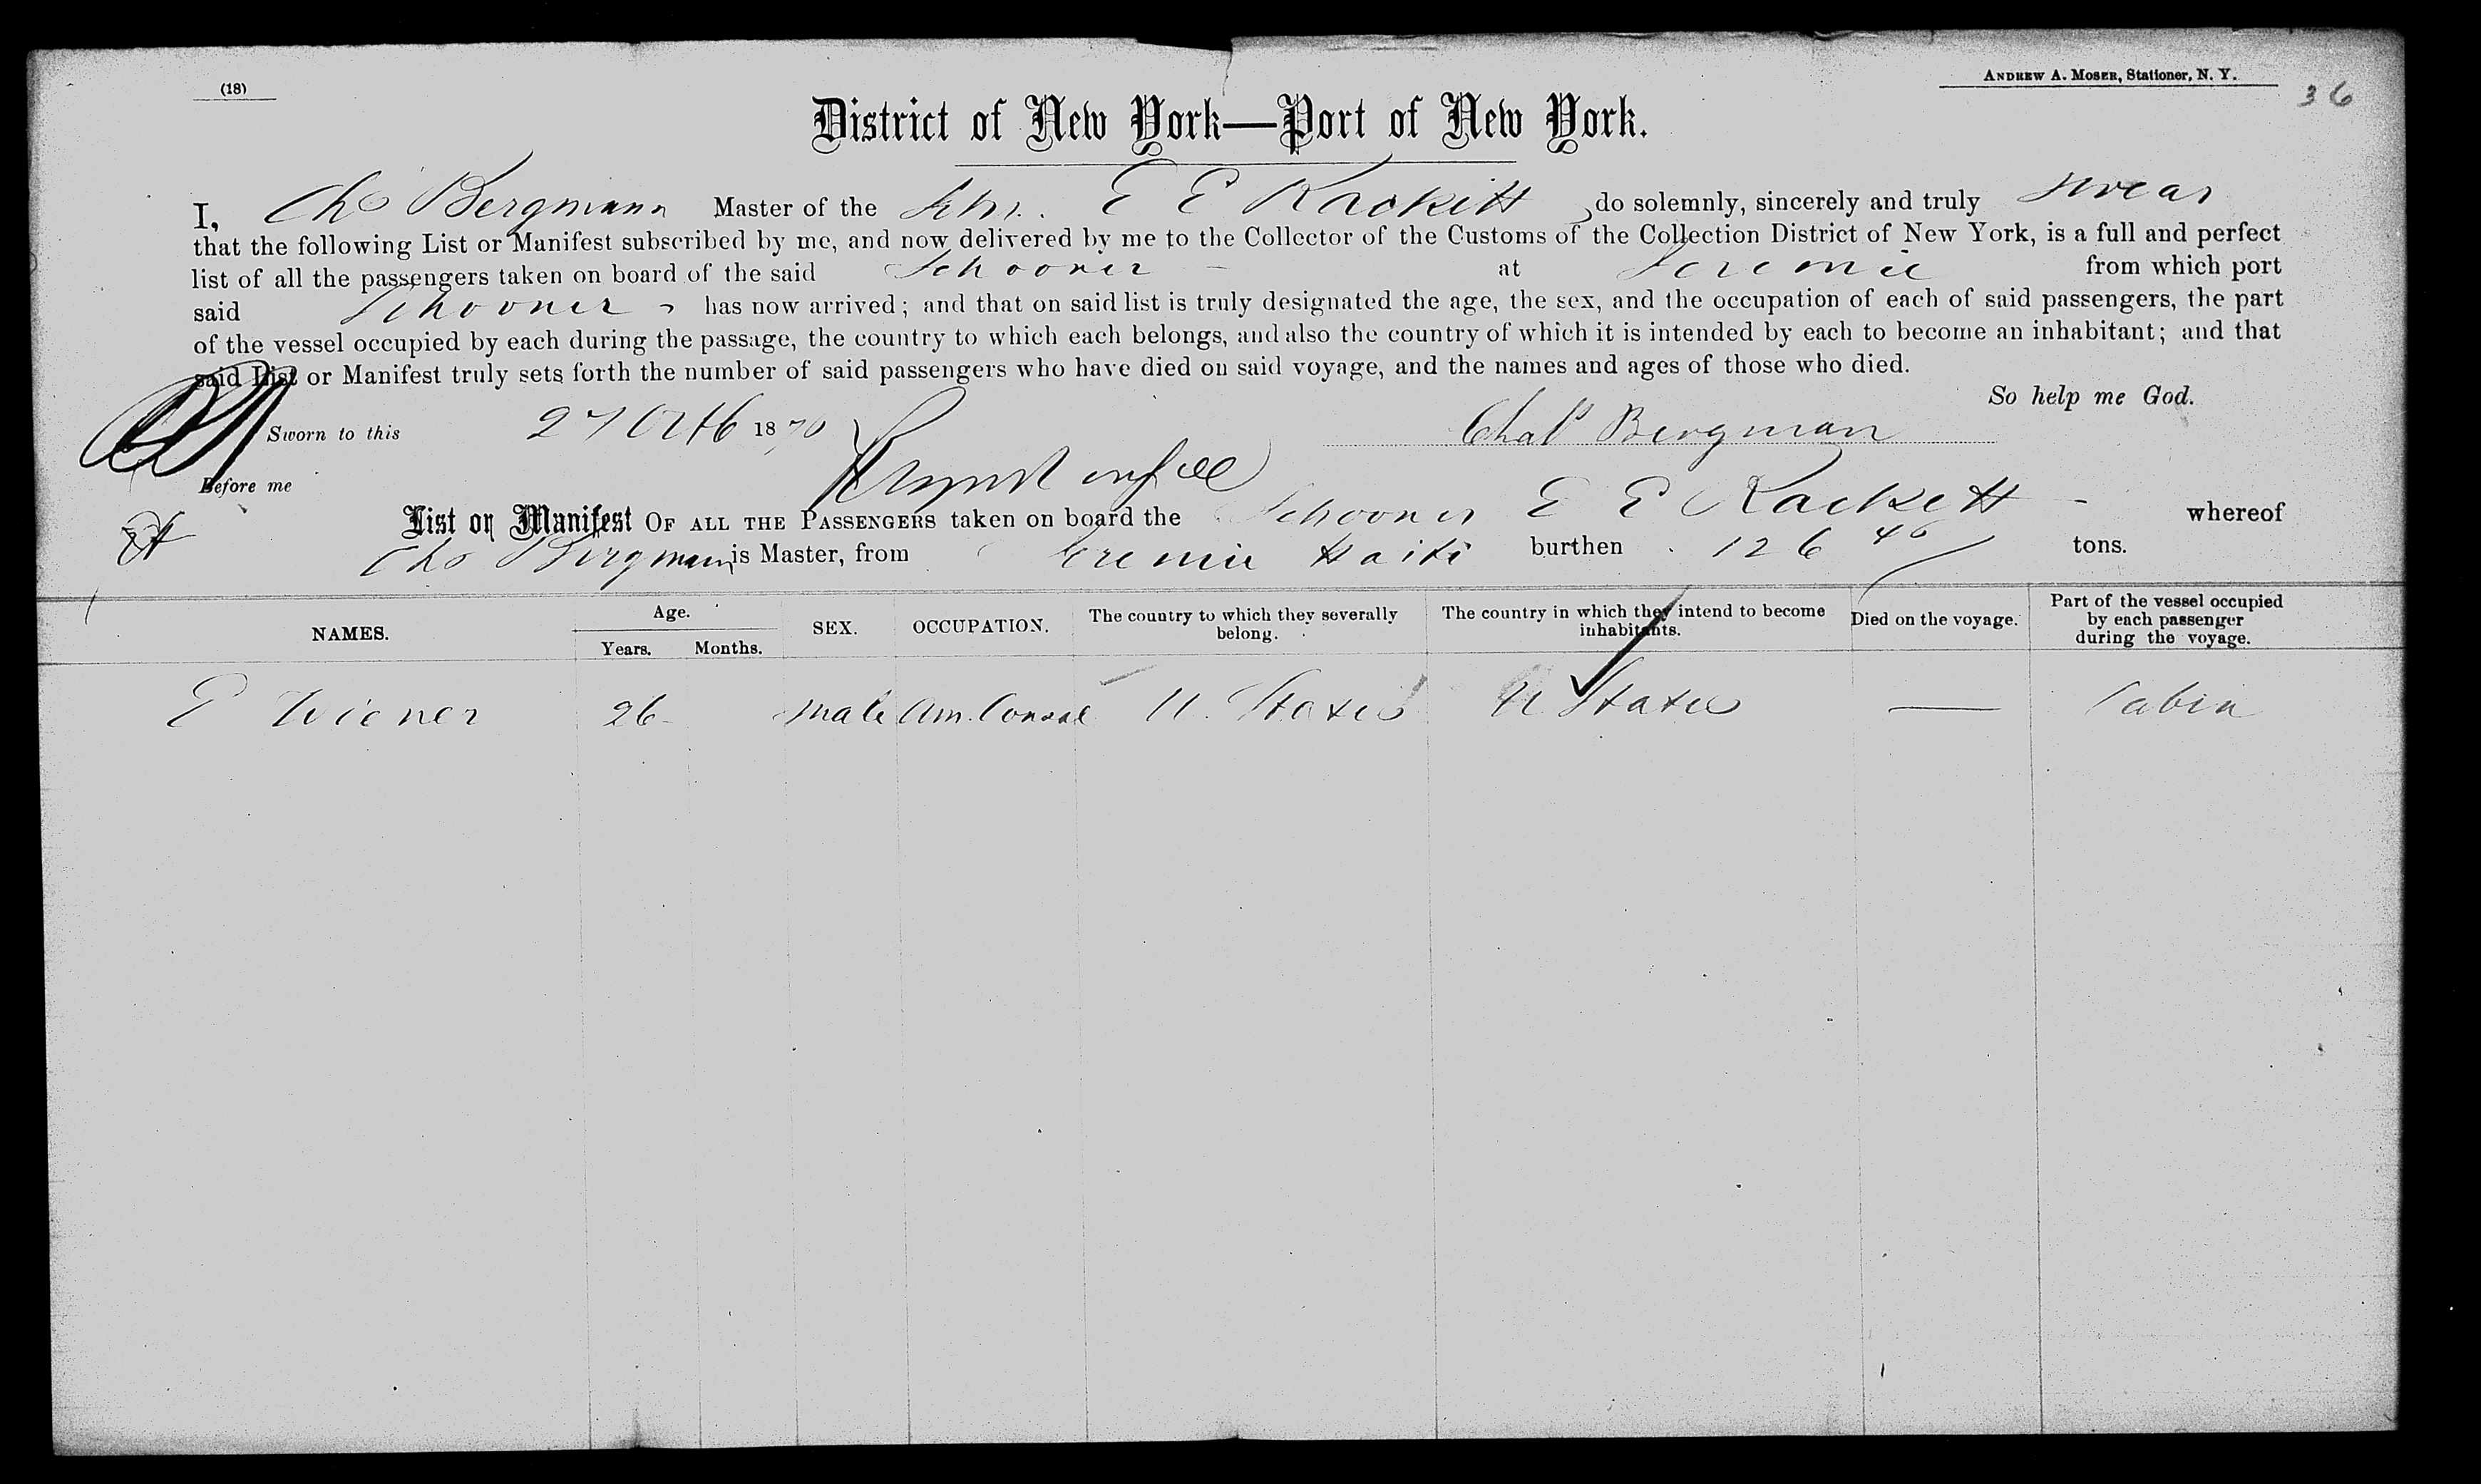 (18)
ANDREW A. MOSER, Stationer, N. Y.
36
District of New York—Port of New York.
I, Chs Bergmann Master of the Schr. E E Rackett do solemnly, sincerely and truly swear
that the following List or Manifest subscribed by me, and now delivered by me to the Collector of the Customs of the Collection District of New York, is a full and perfect
list of all the passengers taken on board of the said Schooner - at Jeremie from which port
said Schooner has now arrived; and that on said list is truly designated the age, the sex, and the occupation of each of said passengers, the part
of the vessel occupied by each during the passage, the country to which each belongs, and also the country of which it is intended by each to become an inhabitant; and that
said List or Manifest truly sets forth the number of said passengers who have died on said voyage, and the names and ages of those who died.
So help me God.
Sworn to this 27 Octb 1870 Chas Bergman
Before me
List or Manifest OF ALL THE PASSENGERS taken on board the Schooner E E Rackett - whereof
Chs Bergmann is Master, from Jeremie Haiti burthen 126 46 tons.
NAMES. Age. Years. Months. SEX. OCCUPATION. The country to which they severally belong. The country in which they intend to become inhabitants. Died on the voyage. Part of the vessel occupied by each passenger during the voyage.
E Wiener 26 male Am. Consul U. States U States — Cabin